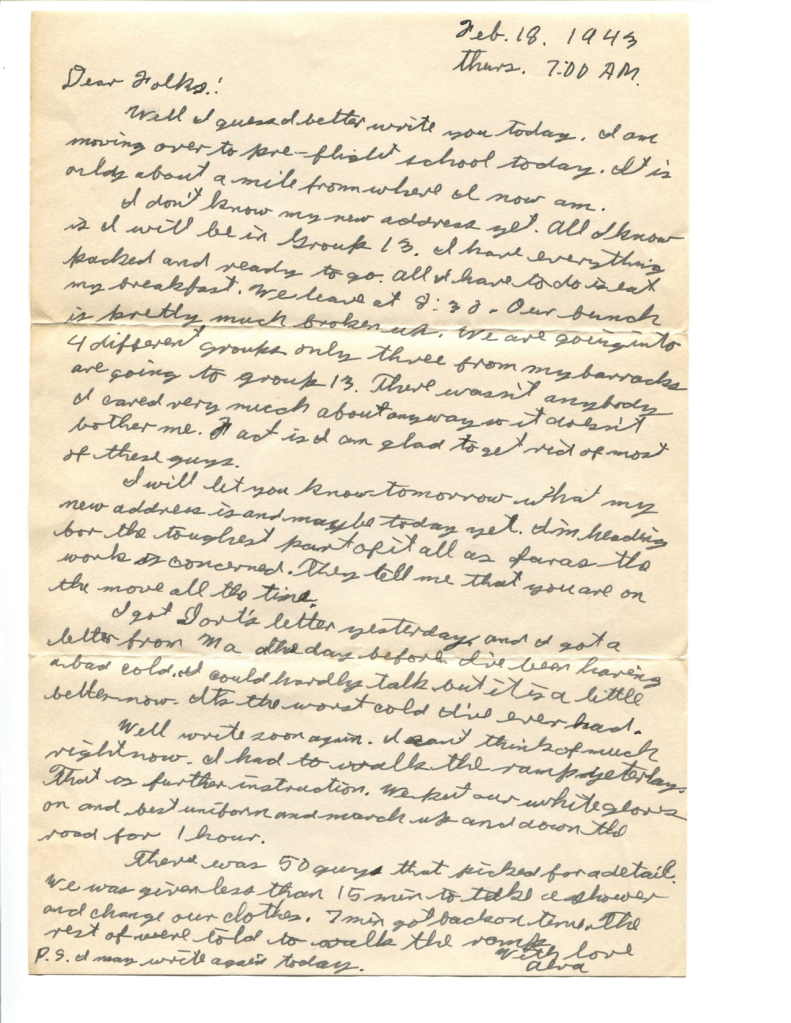 Feb. 18. 1943
Thurs. 7:00 AM.
Dear Folks:
Well I guess I better write you today. I am
moving over to pre-flight school today. It is
only about a mile from where I now am.
I don't know my new address yet. All I know
is I will be in Group 13. I have everything
packed and ready to go. All I have to do is eat
my breakfast. We leave at 8:30. Our bunch
is pretty much broken up. We are going into
4 different groups only three from my barracks
are going to group 13. There wasn't anybody
I cared very much about anyway so it doesn't
bother me. Fact is I am glad to get rid of most
of these guys.
I will let you know tomorrow what my
new address is and maybe today yet. I'm heading
for the toughest part of it all as far as the
work is concerned. They tell me that you are on
the move all the time.
I got Dort's letter yesterday, and I got a
letter from Ma the day before. I've been having
a bad cold. I could hardly talk but it is a little
better now. It's the worst cold I've ever had.
Well write soon again. I can't think of much
right now. I had to walk the ramp yeterlay.
That is further instruction. We put our white gloves
on and best uniform and march up and down the
road for 1 hour.
There was 50 guys that picked for a detail.
We was given less than 15 min to take a shower
and change our clothes. 7 min got back on time. The
rest of were told to walk the ramp.
With love
Alva
P.S. I may write again today.